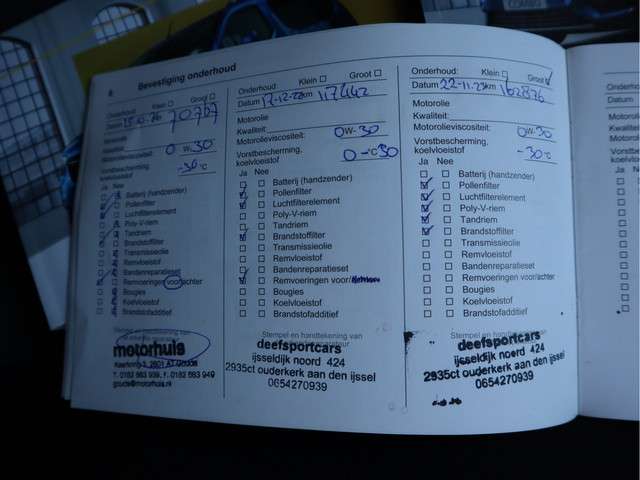 COMBO
8 Bevestiging onderhoud
Onderhoud: Klein Groot
Datum km 70707
Motorolie
Kwaliteit:
Motorolieviscositeit: 0 W-30
Vorstbescherming,
koelvloeistof -30°C
Ja Nee
Batterij (handzender)
Pollenfilter
Luchtfilterelement
Poly-V-riem
Tandriem
Brandstoffilter
Transmissieolie
Remvloeistof
Bandenreparatieset
Remvoeringen voor/achter
Bougies
Koelvloeistof
Brandstofadditief
Stempel en handtekening van
motorhuis
gouda@motorhuis.nl
Onderhoud: Klein Groot
Datum 17-12-22 km 117442
Motorolie
Kwaliteit:
Motorolieviscositeit: 0W-30
Vorstbescherming,
koelvloeistof 0-°C30
Ja Nee
Batterij (handzender)
Pollenfilter
Luchtfilterelement
Poly-V-riem
Tandriem
Brandstoffilter
Transmissieolie
Remvloeistof
Bandenreparatieset
Remvoeringen voor/
Bougies
Koelvloeistof
Brandstofadditief
Stempel en handtekening van
deefsportcars
ijsseldijk noord 424
2935ct ouderkerk aan den ijssel
0654270939
Onderhoud: Klein Groot
Datum 22-11-23 km 162876
Motorolie
Kwaliteit:
Motorolieviscositeit: 0W-30
Vorstbescherming,
koelvloeistof -30°C
Ja Nee
Batterij (handzender)
Pollenfilter
Luchtfilterelement
Poly-V-riem
Tandriem
Brandstoffilter
Transmissieolie
Remvloeistof
Bandenreparatieset
Remvoeringen voor/achter
Bougies
Koelvloeistof
Brandstofadditief
Stempel en handtekening van
deefsportcars
ijsseldijk noord 424
2935ct ouderkerk aan den ijssel
0654270939
Onderhoud
Datum
Motorolie
Kwaliteit